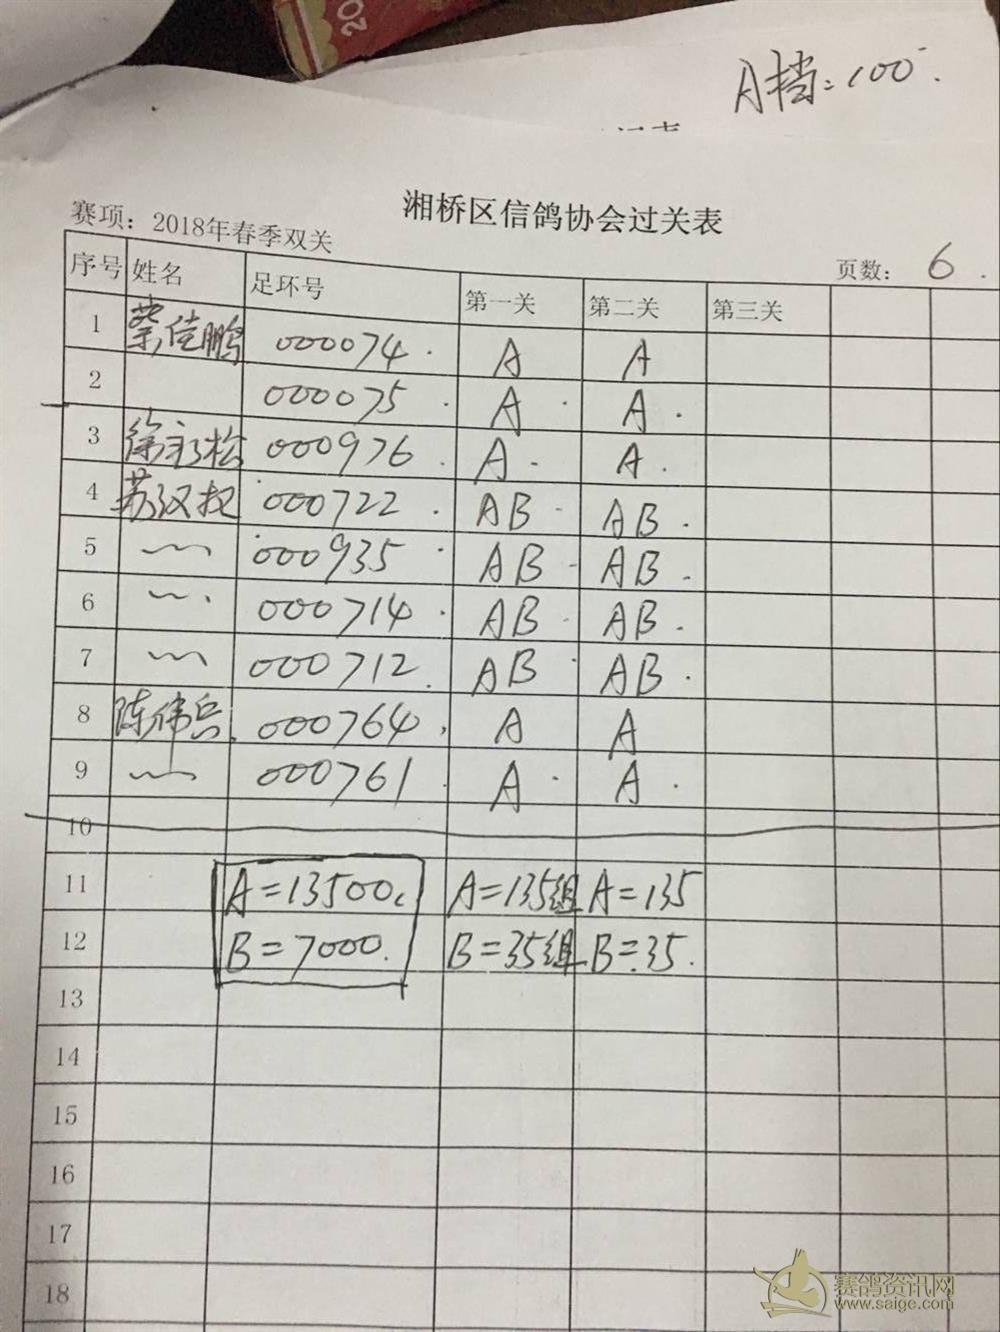 20
A档=100
湘桥区信鸽协会过关表
赛项：2018年春季双关
页数： 6
序号 姓名 足环号 第一关 第二关 第三关
1 蔡佳鹏 000074 A A
2 000075 A A
3 徐永松 000976 A A
4 苏汉权 000722 AB AB
5 000935 AB AB
6 000714 AB AB
7 000712 AB AB
8 陈伟兵 000764 A A
9 000761 A A
10
11 A=13500 A=135组 A=135
12 B=7000 B=35组 B=35
13
14
15
16
17
18
赛鸽资讯网
www.saige.com